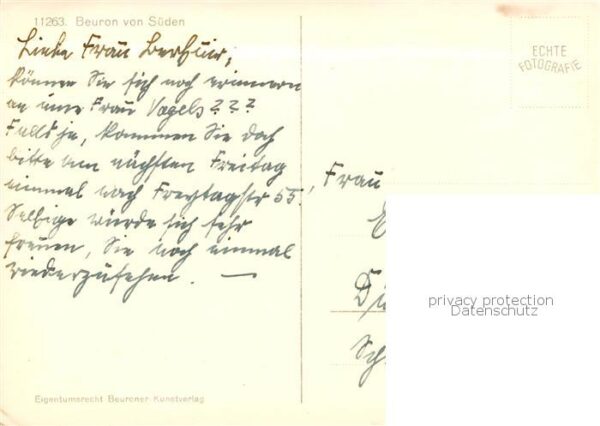 11263. Beuron von Süden
Liebe Frau
können Sie sich noch erinnern
an eine Frau Vogels???
Falls ja, kommen Sie doch
bitte am nächsten Freitag
einmal nach Freytagstr 55,
Selbige würde sich sehr
freuen, Sie noch einmal
wiederzusehen. —
ECHTE
FOTOGRAFIE
Frau
privacy protection
Datenschutz
Eigentumsrecht Beuroner Kunstverlag